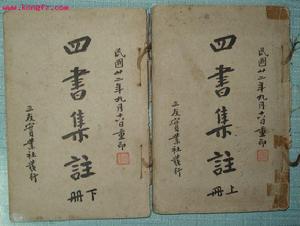 www.kongfz.com
民國廿二年九月十六日重印
四書集註
上冊
三友實業社發行
民國廿二年九月十六日重印
四書集註
下冊
三友實業社發行